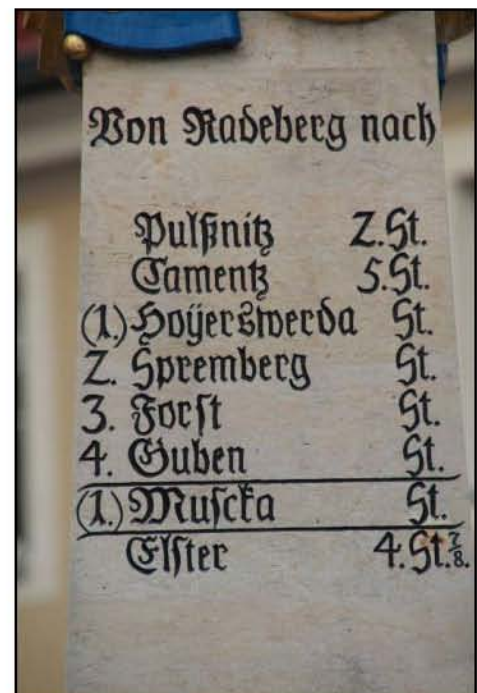 Von Radeberg nach
Pulßnitz 2.St.
Camentz 5.St.
(1.) Hoÿerswerda St.
2. Spremberg St.
3. Forst St.
4. Guben St.
(1.) Muscka St.
Elster 4.St.⅞.